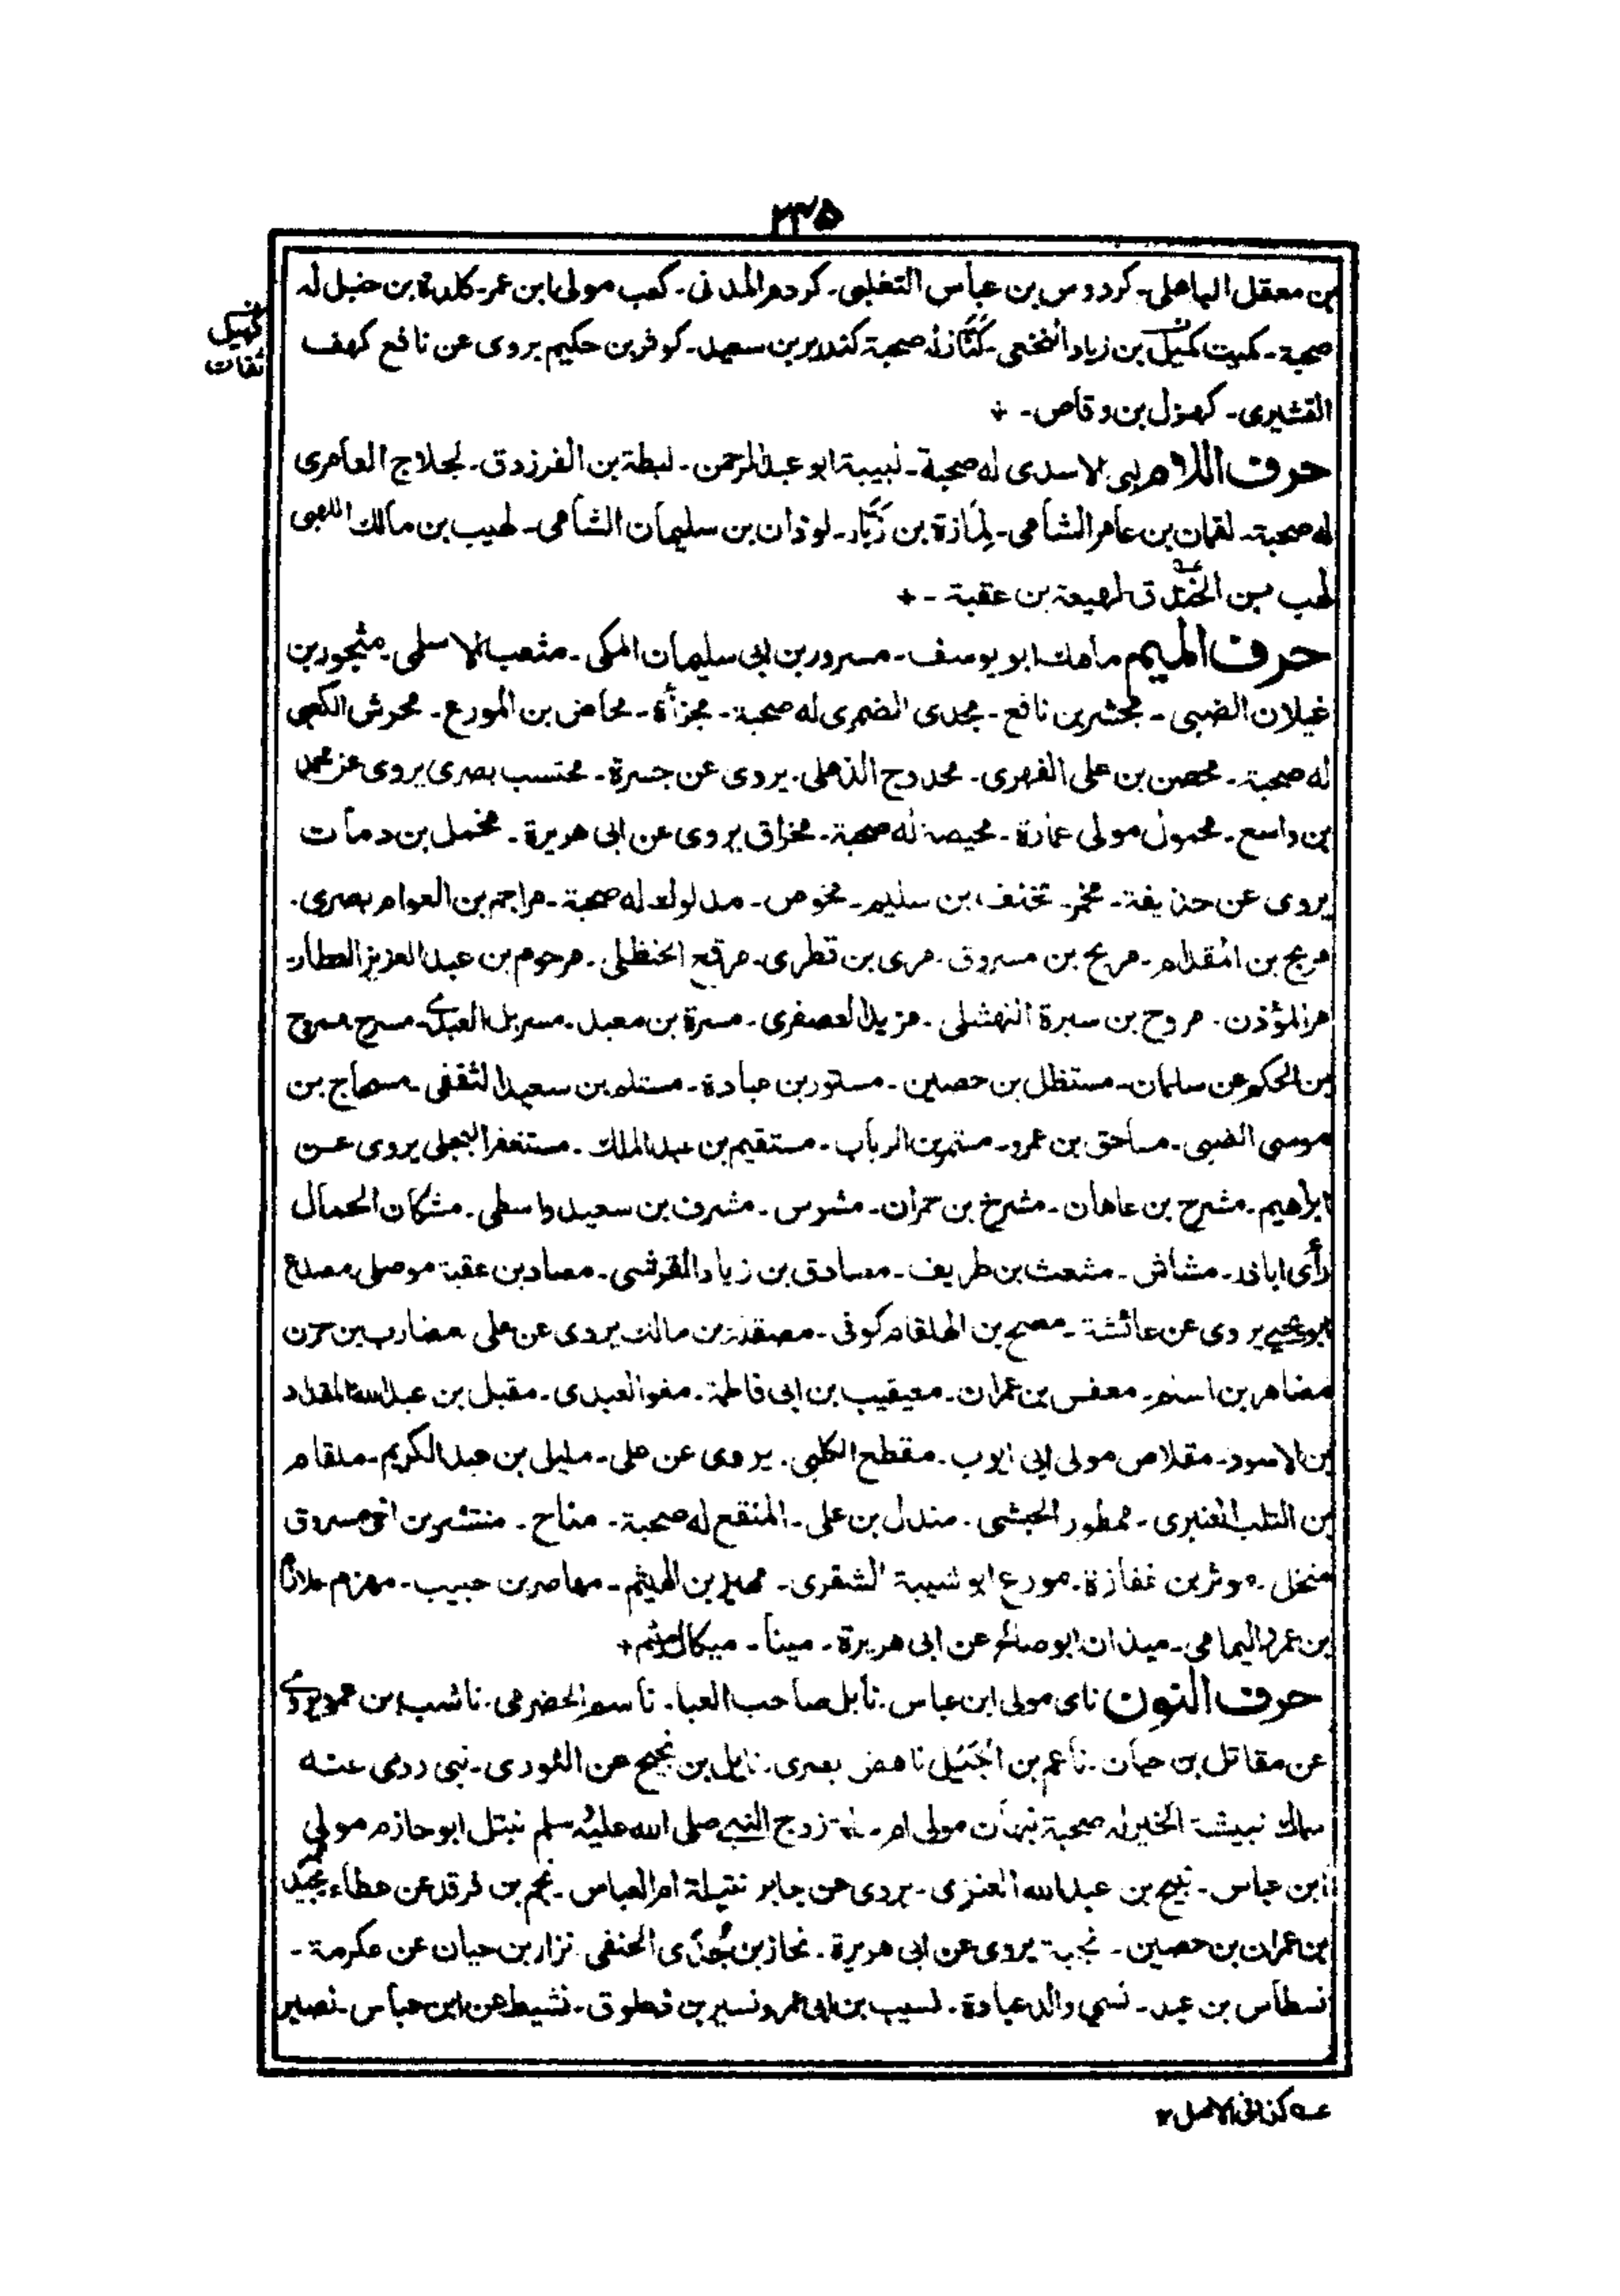 ٢٣٥
بن معقل الباهلى۔ كردوس بن عباس التغلبى۔ كردم المدنى۔ كعب مولى ابن عمر۔ كلدة بن حنبل له
صحبة۔ كميت كميل بن زياد النخعى۔ كَنَّاز له صحبة كندير بن سعيد۔ كوفر بن حكيم يروى عن نافع كهف
كهيل
ثقات
القشيرى۔ كهول بن وقاص۔ +
حرف اللام لبى الاسدى له صحبة۔ لبيبة ابو عبد الرحمن۔ لبطة بن الفرزدق۔ لجلاج العامرى
له صحبة۔ لقمان بن عامر الشامى۔ لِمَازة بن زَبَّار۔ لوذان بن سليمان الشامى۔ لهيب بن مالك اللهبى
لهب بن الخندق لهيعة بن عقبة ۔ +
حرف الميم ماهك ابو يوسف۔ مسرور بن ابى سليمان المكى۔ مثعب الاسلمى۔ مثجور بن
غيلان الضبى ۔ مجشر بن نافع۔ مجدى الضمرى له صحبة۔ مجزأة۔ محاضر بن المورع۔ محرش الكعبى
له صحبة۔ محصن بن على الفهرى۔ محدوج الذهلى۔ يروى عن جسرة۔ محتسب بصرى يروى عن محمد
بن واسع۔ محمول مولى عمارة۔ محيصة له صحبة۔ مخراق يروى عن ابى هريرة۔ مخمل بن دماث
يروى عن حذيفة۔ مخمر۔ مخنف بن سليم۔ مخوص۔ مدلوك له صحبة۔ مراجم بن العوام بصرى۔
مريح بن المقدام۔ مريح بن مسروق۔ مرى بن قطرى۔ مرقع الحنظلى۔ مرحوم بن عبد العزيز العطار
المؤذن۔ مروح بن سبرة النهشلى۔ مزيد العصفرى۔ مسرة بن معبد۔ مسربل العبدى۔ مسرح مسروح
بن الحكم عن سلمان۔ مستظل بن حصين۔ مستور بن عبادة۔ مستلم بن سعيد الثقفى۔ مسحاج بن
موسى الضبى۔ مساحق بن عمرو۔ مستمر بن الرباب۔ مستقيم بن عبد الملك۔ مستغفر البجلى يروى عن
ابراهيم۔ مشرح بن عاهان۔ مشرخ بن حمران۔ مشرس۔ مشرف بن سعيد واسطى۔ مشكان الحمال
رأى اباذر۔ مشاش۔ مشعث بن طريف۔ مصادق بن زياد القرشى۔ مصاد بن عقبة موصلى مصدع
ابو يحيى يروى عن عائشة۔ مصبح بن الهلقام كوفى۔ مصقلة بن مالك يروى عن على مضارب بن حزن
مضاهر بن اسلم۔ معفس بن عمران۔ معيقيب بن ابى فاطمة۔ مغو العبدى۔ مقبل بن عبد الله المقداد
بن الاسود۔ مقلاص مولى ابى ايوب۔ مقطع الكلبى۔ يروى عن على۔ مليل بن عبد الكريم۔ ملقام
بن التلب العنبرى۔ ممطور الحبشى۔ مندل بن على۔ المنقع له صحبة۔ مناح۔ منتشر بن اخى مسروق
منخل۔ موثر بن غفازة۔ مورع ابو شيبة الشقرى۔ بن الهيثم۔ مهاصر بن حبيب۔ مهزم ملازم
بن عمرو اليمامى۔ ميذان ابو صالح عن ابى هريرة۔ مينا۔ ميكال +
حرف النون ناى مولى ابن عباس۔ نابل صاحب العبا۔ ناسم الحضرمى۔ ناشب بن عمرو يروى
عن مقاتل بن حيان۔ ناعم بن اُجَيْل ناهض بصرى۔ نايل بن نجيح عن الثورى۔ نبى روى عنه
سماك نبيشة الخير له صحبة نبهان مولى ام سلمة زوج النبى صلى الله عليه وسلم نبتل ابو حازم مولى
ابن عباس۔ نبيح بن عبد الله العنزى۔ يروى عن جابر نتيلة ام العباس۔ نجم بن فرقد عن عطاء نجيد
بن عمران بن حصين۔ نجبة يروى عن ابى هريرة۔ نحاز بن جُدَى الحنفى نزار بن حيان عن عكرمة۔
نسطاس بن عبد۔ نسى والد عبادة۔ نسيب بن ابى عمرو نسير بن ذعلوق۔ نشيط عن ابن عباس۔ نصير
عه كذا فى الاصل ١٢